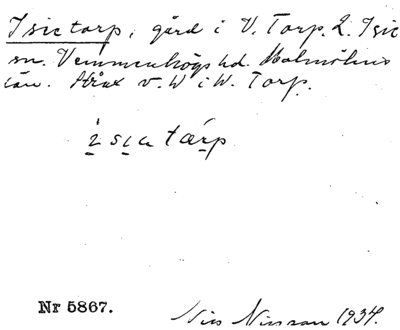 Isietorp, gård i V. Torp. L. Isie
sn. Vemmenhögs hd. Malmöhus
län. Strax v. W i W. Torp.
isiatårp
Nr 5867.
Nils Nilsson 1934.